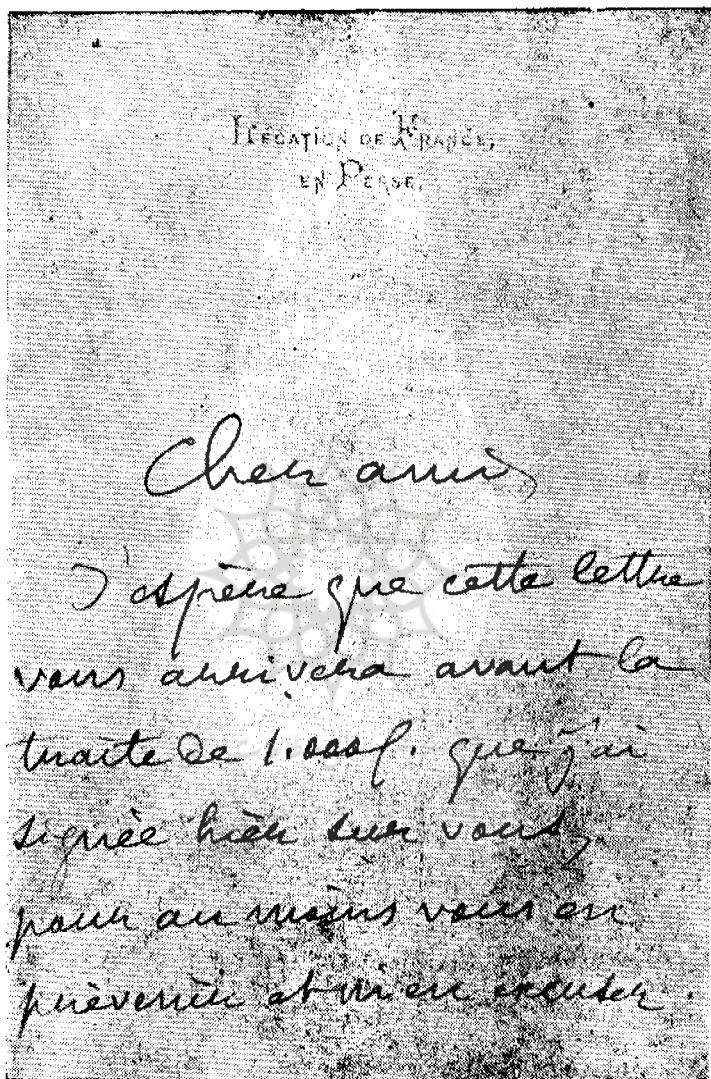 LÉGATION DE FRANCE,
EN PERSE.
Cher ami,
J'espère que cette lettre
vous arrivera avant la
traite de 1.000f. que j'ai
signée hier sur vous,
pour au moins vous en
prévenir et m'en excuser.